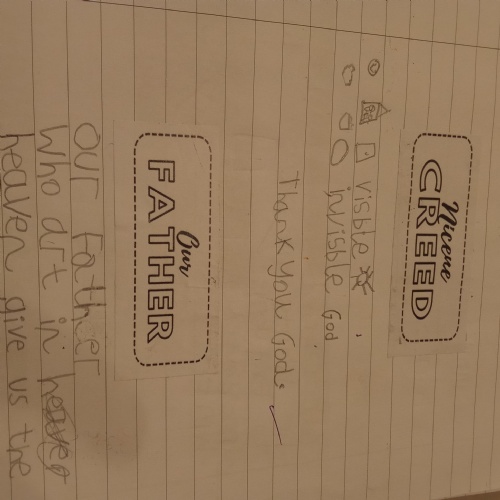 Nicene
CREED
visible
invisible God
Thank you God.
Our
FATHER
our Father
Who art in
heaven give us the